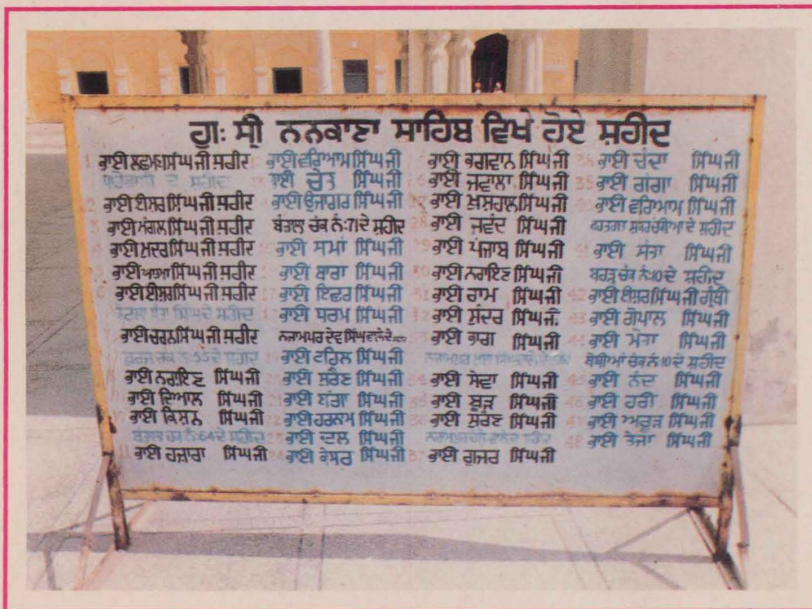 ਗੁ: ਸ੍ਰੀ ਨਨਕਾਣਾ ਸਾਹਿਬ ਵਿਖੇ ਹੋਏ ਸ਼ਹੀਦ
ਭਾਈ ਲਛਮਣ ਸਿੰਘ ਜੀ ਸ਼ਹੀਦ
ਦੇ ਸ਼ਹੀਦ
2 ਭਾਈ ਈਸ਼ਰ ਸਿੰਘ ਜੀ ਸ਼ਹੀਦ
3 ਭਾਈ ਮੰਗਲ ਸਿੰਘ ਜੀ ਸ਼ਹੀਦ
ਭਾਈ ਮਦਰ ਸਿੰਘ ਜੀ ਸ਼ਹੀਦ
ਭਾਈ ਆਤਮਾ ਸਿੰਘ ਜੀ ਸ਼ਹੀਦ
ਭਾਈ ਈਸ਼ਰ ਸਿੰਘ ਜੀ ਸ਼ਹੀਦ
ਸਿੰਘ ਦੇ ਸ਼ਹੀਦ
ਭਾਈ ਚਰਨ ਸਿੰਘ ਜੀ ਸ਼ਹੀਦ
ਚਕ ਨੰ: 55 ਦੇ ਸ਼ਹੀਦ
ਭਾਈ ਨਰਾਇਣ ਸਿੰਘ ਜੀ
ਭਾਈ ਦਿਆਲ ਸਿੰਘ ਜੀ
ਭਾਈ ਕਿਸ਼ਨ ਸਿੰਘ ਜੀ
ਚਕ ਨੰ: 64 ਦੇ ਸ਼ਹੀਦ
11 ਭਾਈ ਹਜ਼ਾਰਾ ਸਿੰਘ ਜੀ
ਭਾਈ ਵਰਿਆਮ ਸਿੰਘ ਜੀ
ਭਾਈ ਚੇਤ ਸਿੰਘ ਜੀ
ਭਾਈ ਉਜਾਗਰ ਸਿੰਘ ਜੀ
ਬੰਡਾਲਾ ਚੱਕ ਨੰ: 71 ਦੇ ਸ਼ਹੀਦ
ਭਾਈ ਸਮਾਂ ਸਿੰਘ ਜੀ
ਭਾਈ ਬਾਰਾ ਸਿੰਘ ਜੀ
ਭਾਈ ਇਛਰ ਸਿੰਘ ਜੀ
ਭਾਈ ਧਰਮ ਸਿੰਘ ਜੀ
ਨਜ਼ਾਮਪੁਰ ਦੇਵ ਸਿੰਘ ਵਾਲੇ ਦੇ
ਭਾਈ ਟਹਿਲ ਸਿੰਘ ਜੀ
ਭਾਈ ਸੁਰੈਣ ਸਿੰਘ ਜੀ
ਭਾਈ ਬੱਗਾ ਸਿੰਘ ਜੀ
ਭਾਈ ਹਰਨਾਮ ਸਿੰਘ ਜੀ
ਭਾਈ ਦਲ ਸਿੰਘ ਜੀ
24 ਭਾਈ ਕੇਸਰ ਸਿੰਘ ਜੀ
ਭਾਈ ਭਗਵਾਨ ਸਿੰਘ ਜੀ
ਭਾਈ ਜਵਾਲਾ ਸਿੰਘ ਜੀ
ਭਾਈ ਖ਼ੁਸ਼ਹਾਲ ਸਿੰਘ ਜੀ
ਭਾਈ ਜਵੰਦ ਸਿੰਘ ਜੀ
ਭਾਈ ਪੰਜਾਬ ਸਿੰਘ ਜੀ
30 ਭਾਈ ਨਰਾਇਣ ਸਿੰਘ ਜੀ
31 ਭਾਈ ਰਾਮ ਸਿੰਘ ਜੀ
ਭਾਈ ਸੁੰਦਰ ਸਿੰਘ ਜੀ
ਭਾਈ ਭਾਗ ਸਿੰਘ ਜੀ
ਭਾਈ ਸੇਵਾ ਸਿੰਘ ਜੀ
ਭਾਈ ਬੂੜ ਸਿੰਘ ਜੀ
ਭਾਈ ਸੁਰੈਣ ਸਿੰਘ ਜੀ
37 ਭਾਈ ਗੁਜਰ ਸਿੰਘ ਜੀ
ਭਾਈ ਚੰਦਾ ਸਿੰਘ ਜੀ
ਭਾਈ ਗੰਗਾ ਸਿੰਘ ਜੀ
ਭਾਈ ਵਰਿਆਮ ਸਿੰਘ ਜੀ
ਦੇ ਸ਼ਹੀਦ
ਭਾਈ ਸੰਤਾ ਸਿੰਘ ਜੀ
ਚੱਕ ਨੰ: 10 ਦੇ ਸ਼ਹੀਦ
42 ਭਾਈ ਈਸ਼ਰ ਸਿੰਘ ਜੀ ਗ੍ਰੰਥੀ
ਭਾਈ ਗੋਪਾਲ ਸਿੰਘ ਜੀ
ਭਾਈ ਮੋਤਾ ਸਿੰਘ ਜੀ
ਚੱਕ ਨੰ: 10 ਦੇ ਸ਼ਹੀਦ
ਭਾਈ ਨੰਦ ਸਿੰਘ ਜੀ
ਭਾਈ ਹਰੀ ਸਿੰਘ ਜੀ
ਭਾਈ ਅਰੂੜ ਸਿੰਘ ਜੀ
48 ਭਾਈ ਤੇਜਾ ਸਿੰਘ ਜੀ